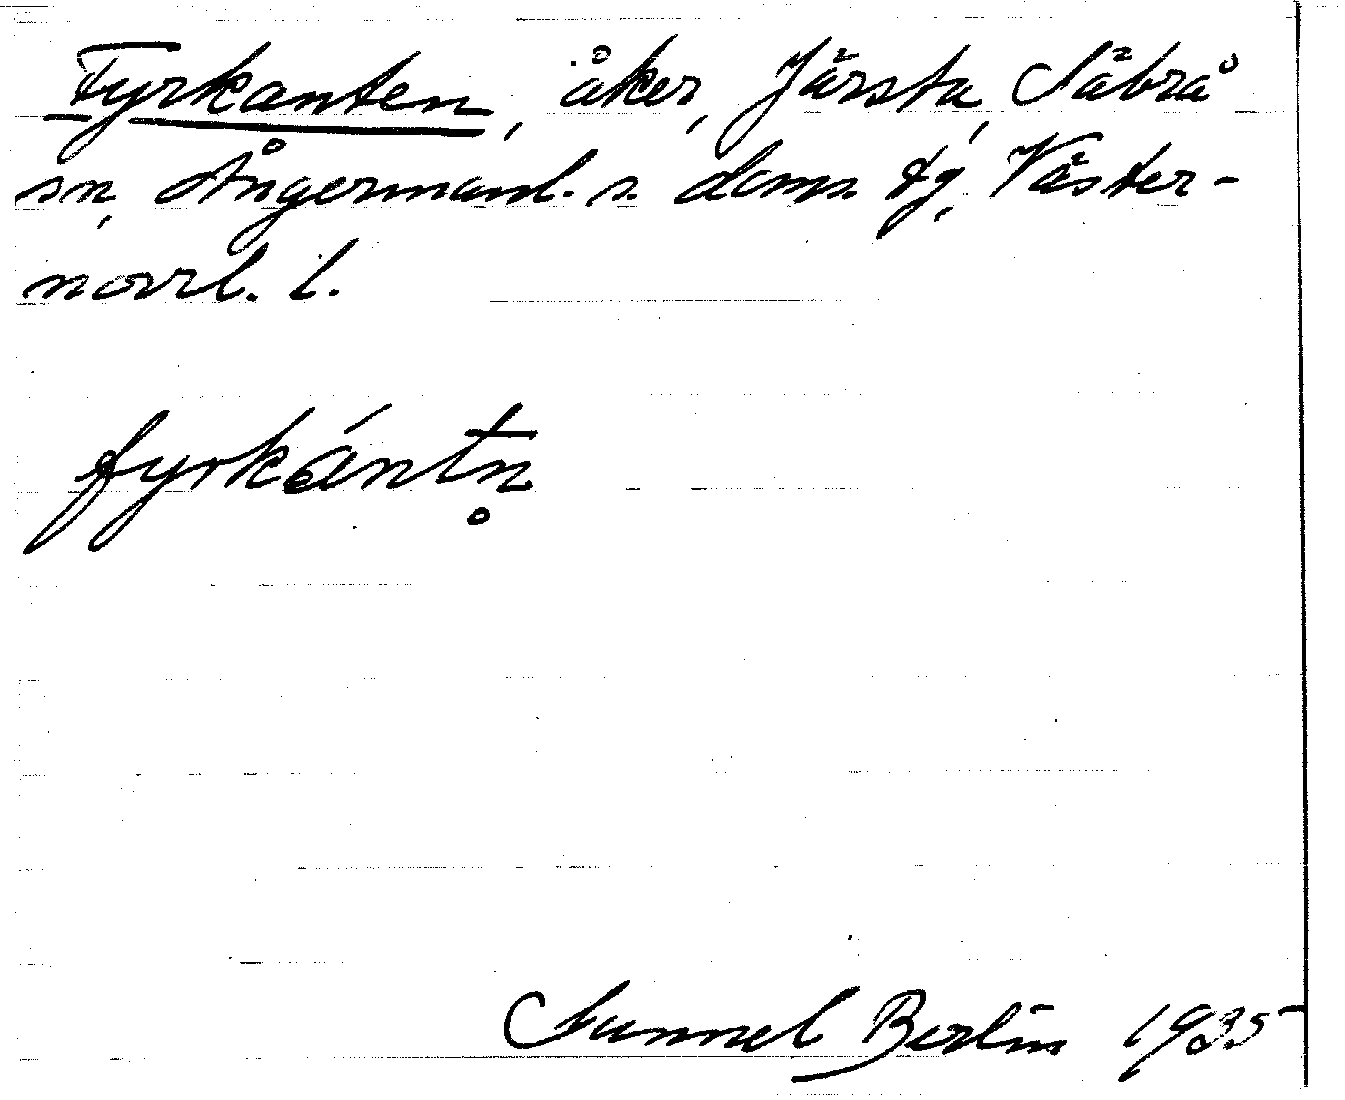 Fyrkanten, åker, Järsta, Säbrå
sn, Ångermanl. s. doms. tg, Väster-
norrl. l.
fyrkántn̥
Sunnel Berlin 1935